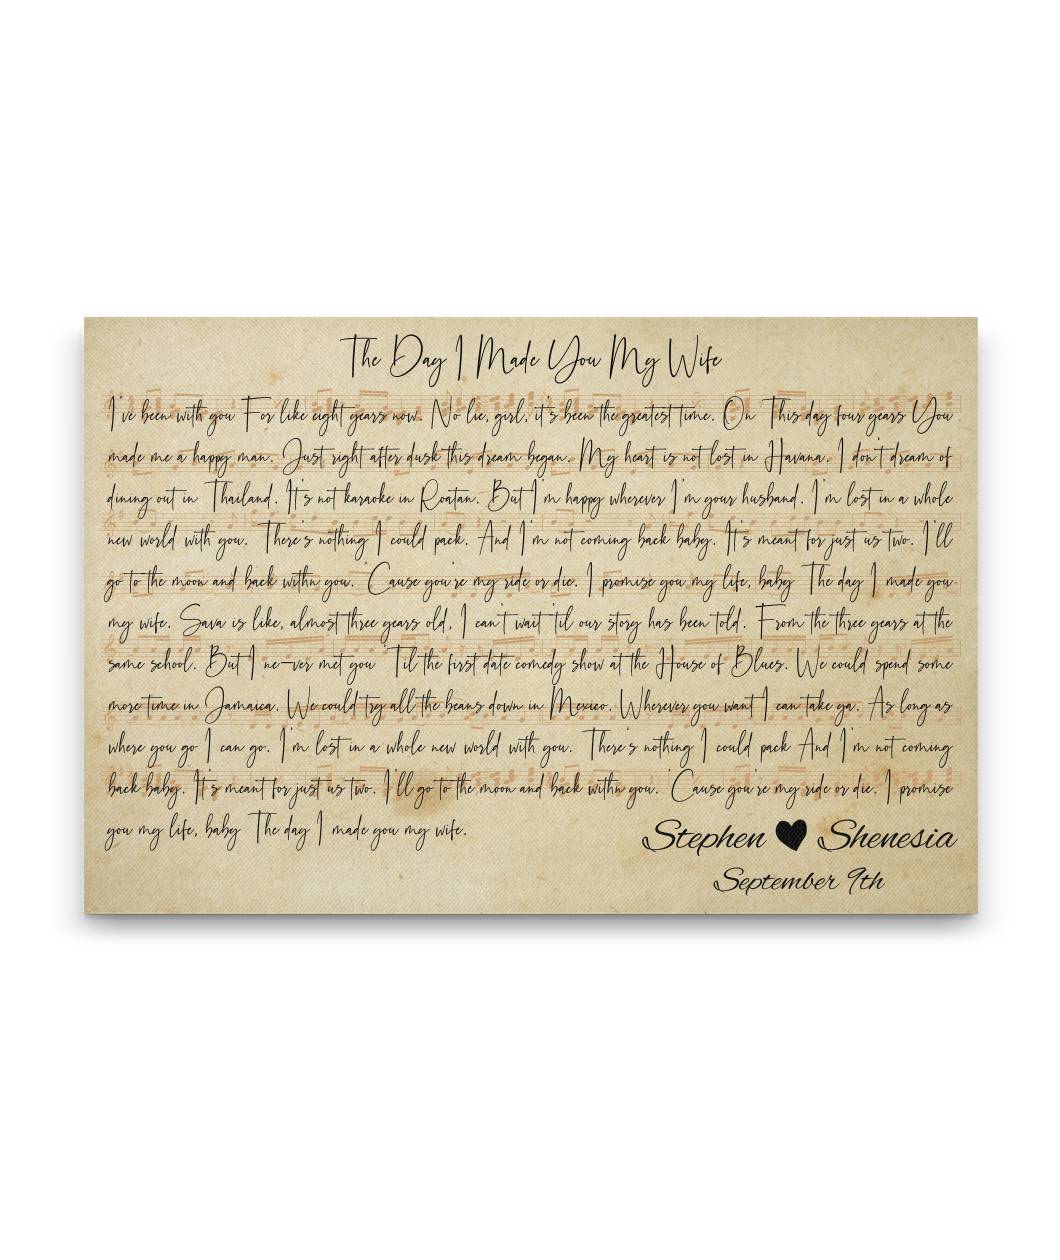 The Day I Made You My Wife
I've been with you For like eight years now. No lie, girl, it's been the greatest time. On This day four years You
made me a happy man. Just right after dusk this dream began. My heart is not lost in Havana. I don't dream of
dining out in Thailand. It's not karaoke in Roatan. But I'm happy wherever I'm your husband. I'm lost in a whole
new world with you. There's nothing I could pack. And I'm not coming back baby. It's meant for just us two. I'll
go to the moon and back withn you. 'Cause you're my ride or die. I promise you my life, baby The day I made you
my wife. Sava is like, almost three years old, I can't wait 'til our story has been told. From the three years at the
same school. But I ne-ver met you 'Til the first date comedy show at the House of Blues. We could spend some
more time in Jamaica. We could try all the beans down in Mexico. Wherever you want I can take ya. As long as
where you go I can go. I'm lost in a whole new world with you. There's nothing I could pack And I'm not coming
back baby. It's meant for just us two. I'll go to the moon and back withn you. 'Cause you're my ride or die. I promise
you my life, baby The day I made you my wife.
Stephen ♥ Shenesia
September 9th